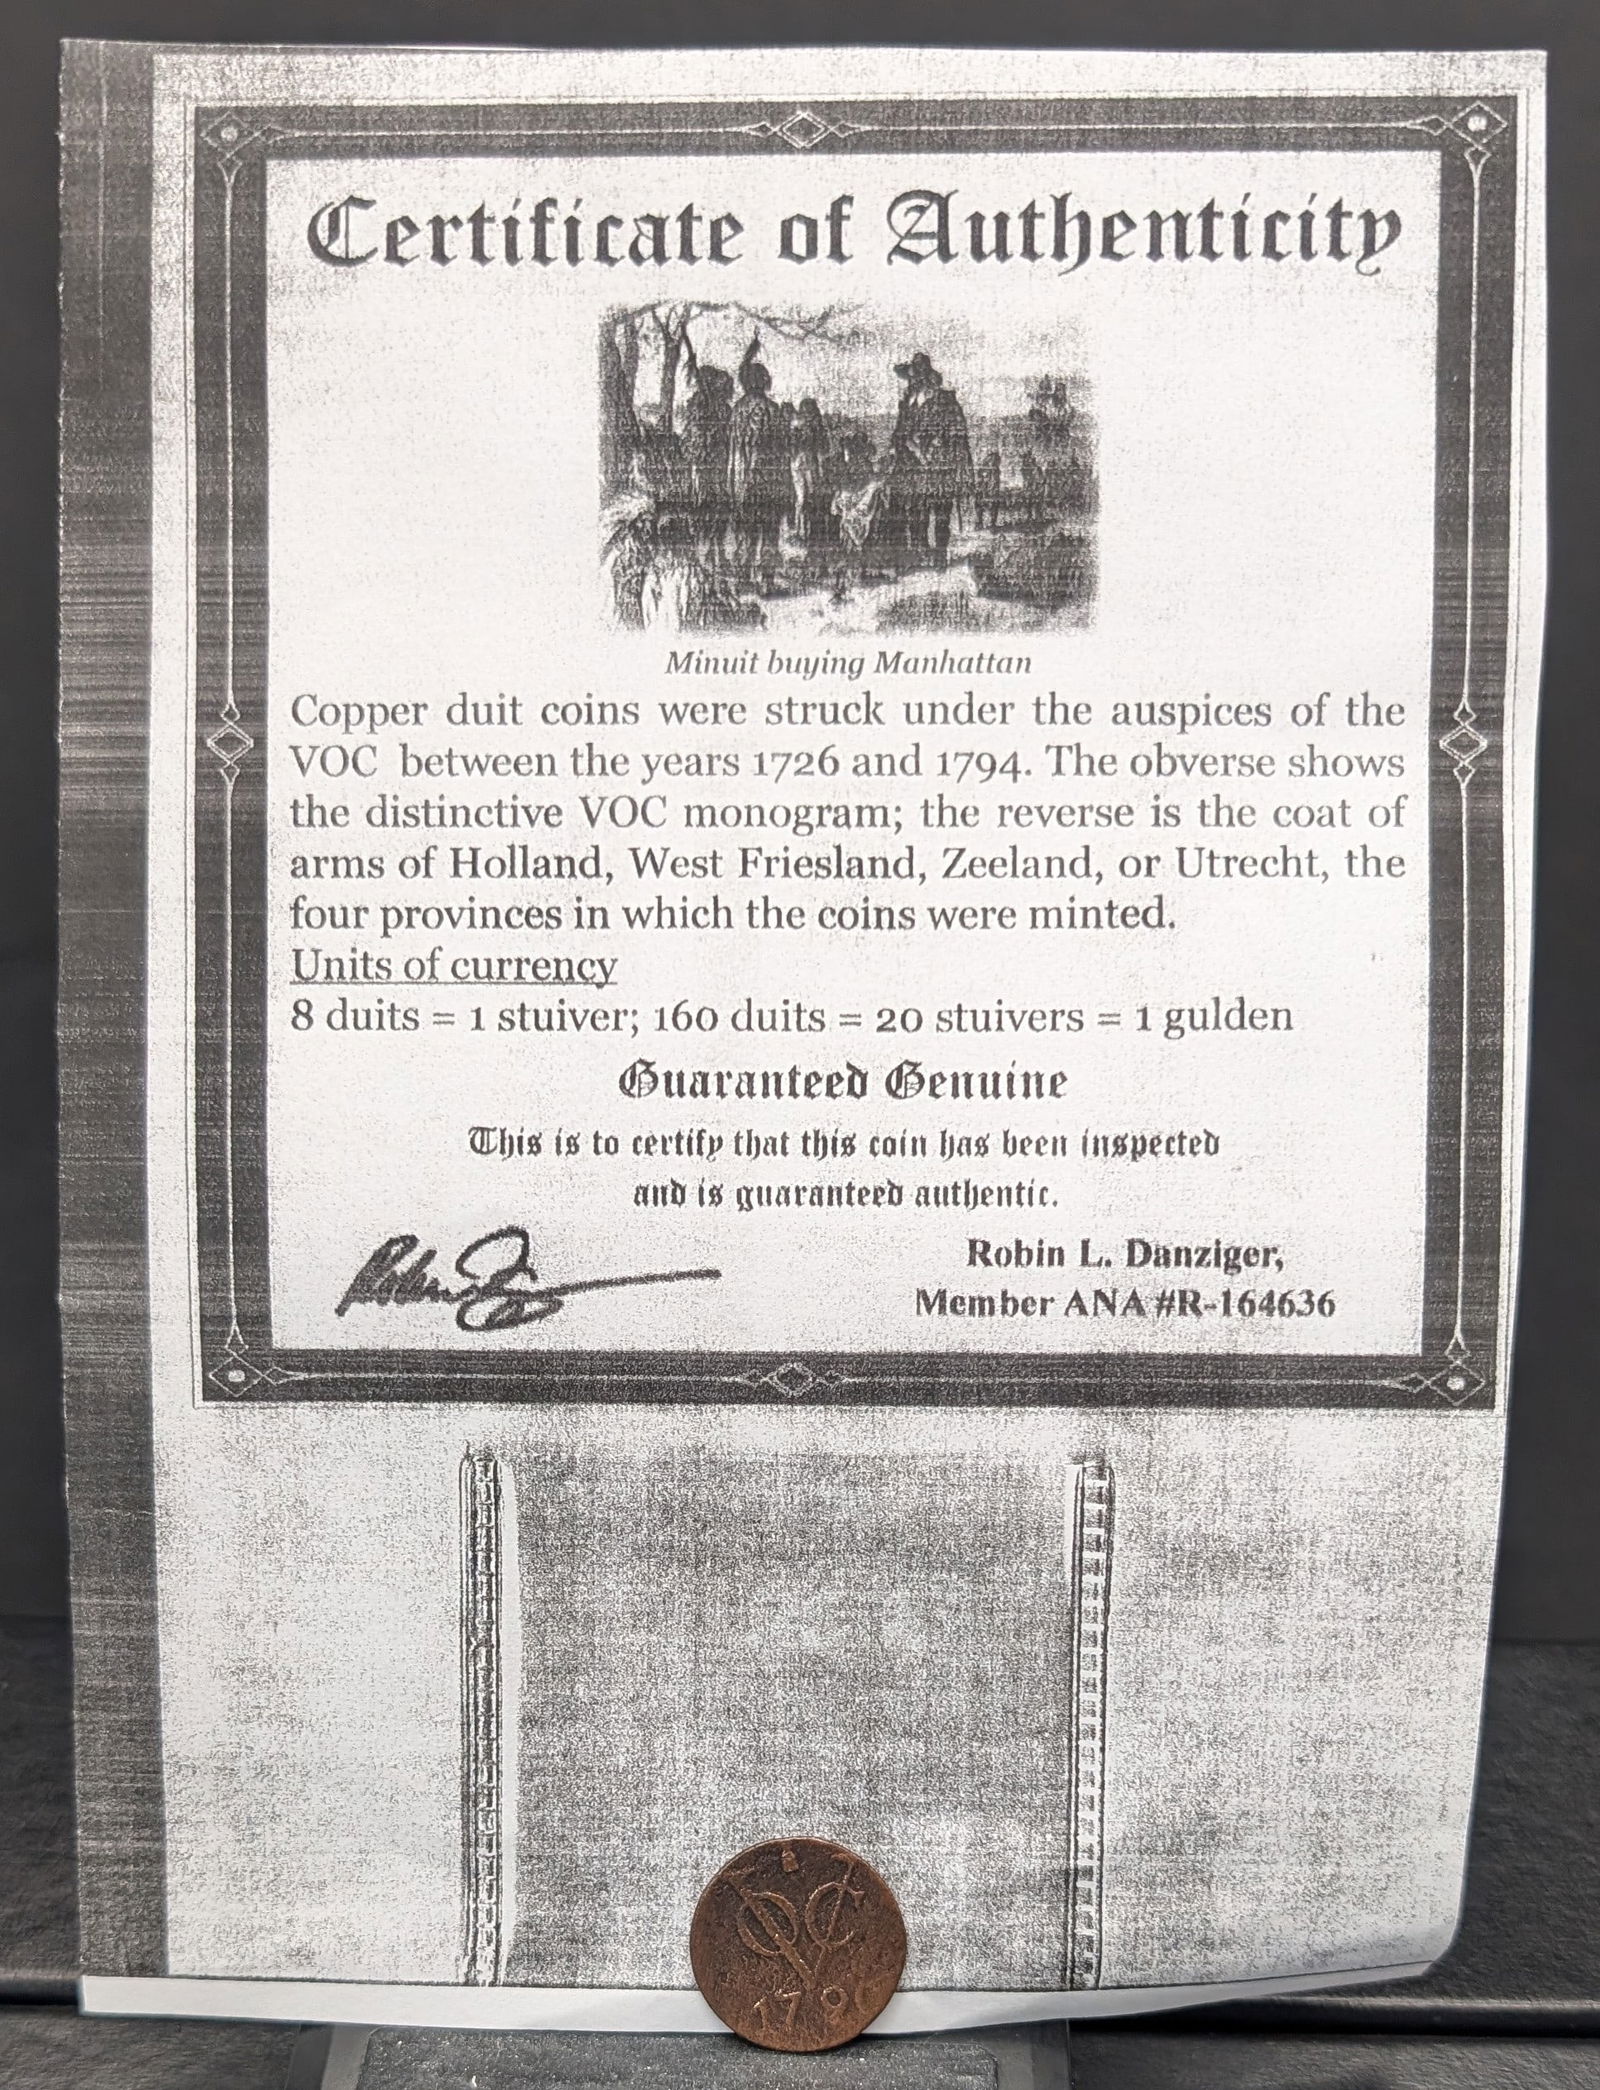 Certificate of Authenticity
Minuit buying Manhattan
Copper duit coins were struck under the auspices of the
VOC between the years 1726 and 1794. The obverse shows
the distinctive VOC monogram; the reverse is the coat of
arms of Holland, West Friesland, Zeeland, or Utrecht, the
four provinces in which the coins were minted.
Units of currency
8 duits = 1 stuiver; 160 duits = 20 stuivers = 1 gulden
Guaranteed Genuine
This is to certify that this coin has been inspected
and is guaranteed authentic.
Robin L. Danziger,
Member ANA #R-164636
VOC